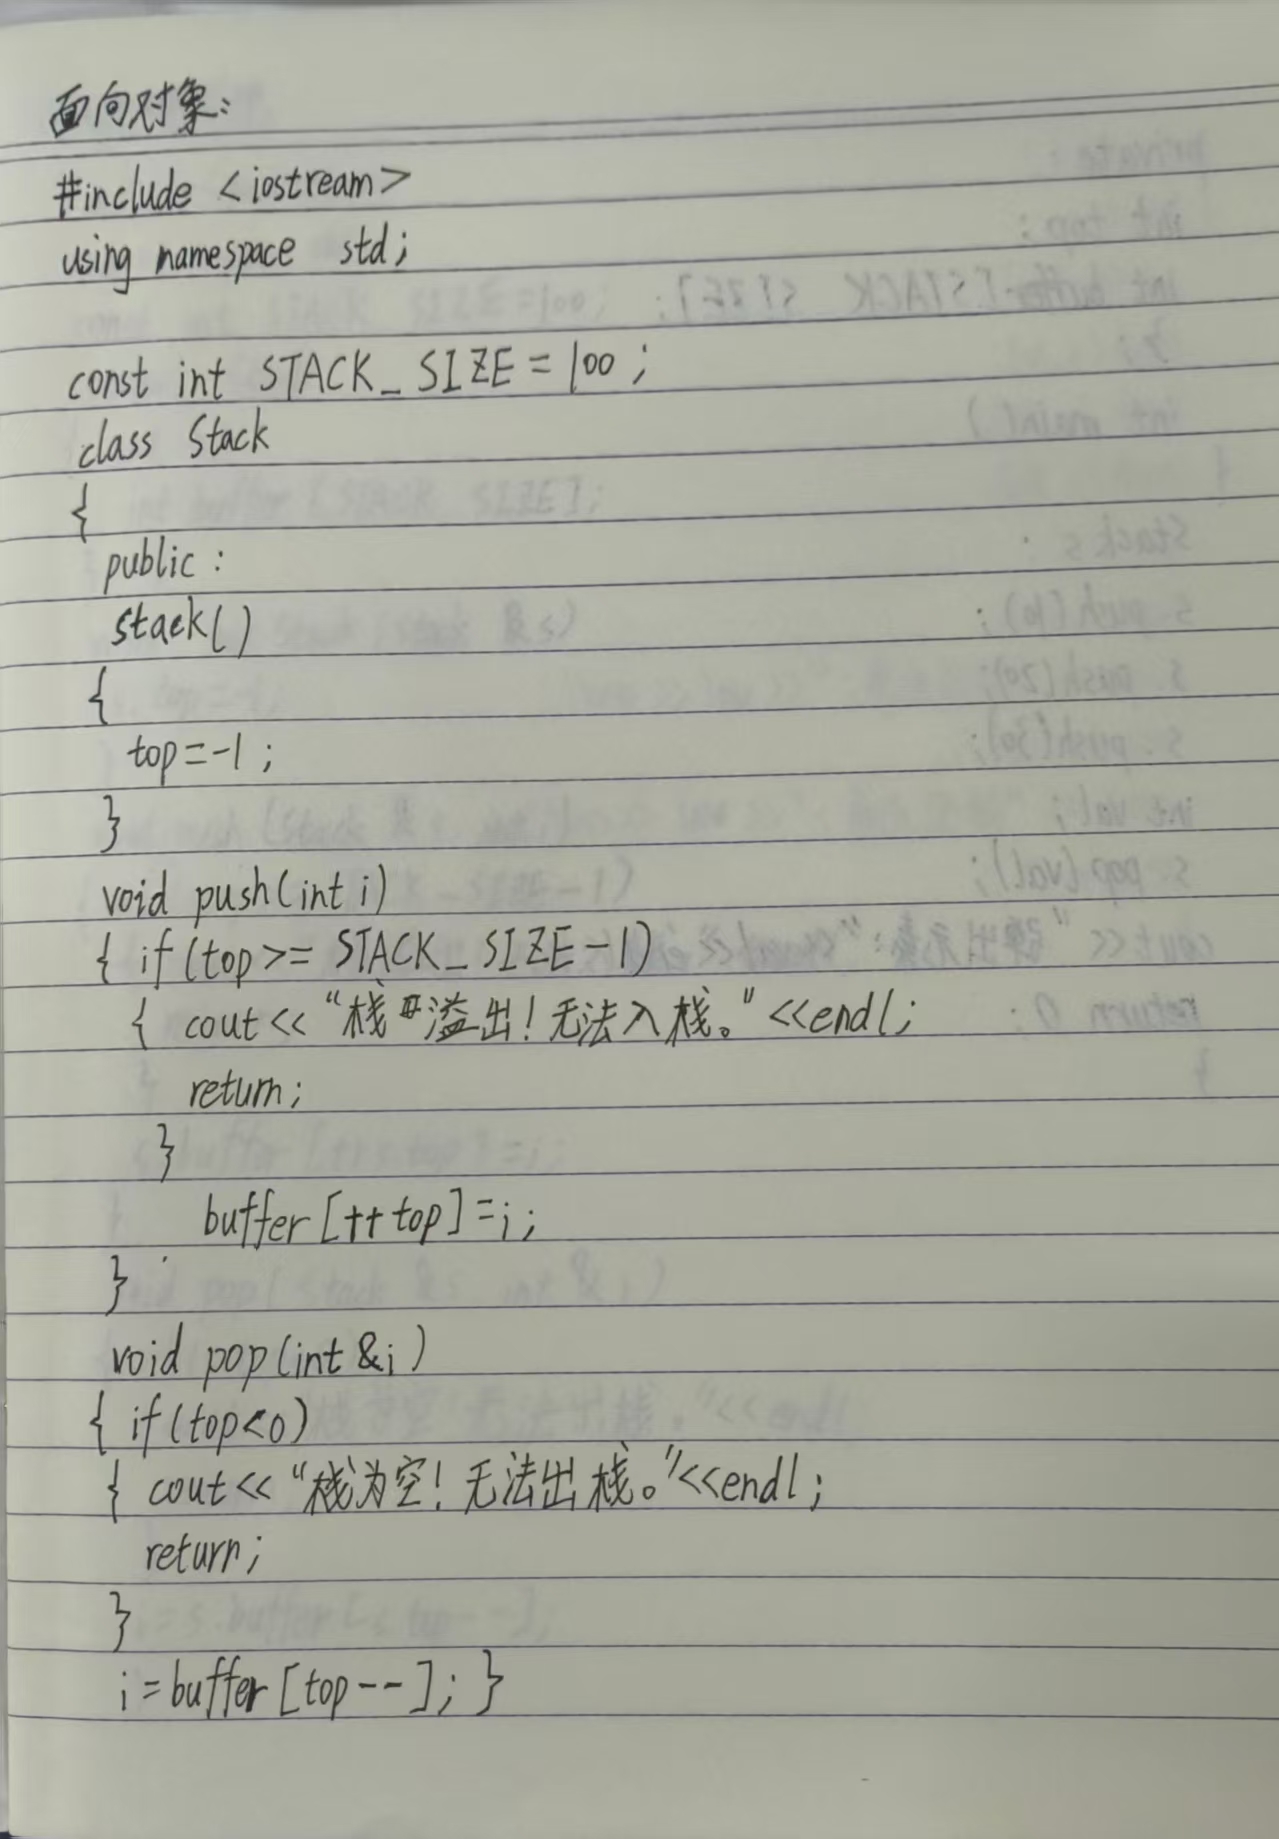 面向对象:
#include <iostream>
using namespace std;
const int STACK_SIZE=100;
class Stack
{
public:
stack()
{
top=-1;
}
void push(int i)
{ if(top>= STACK_SIZE-1)
{ cout<< "栈溢出!无法入栈。" <<endl;
return;
}
buffer[++top]=i;
}
void pop(int &i)
{ if(top<0)
{ cout<< "栈为空!无法出栈。"<<endl;
return;
}
i=buffer[top--]; }